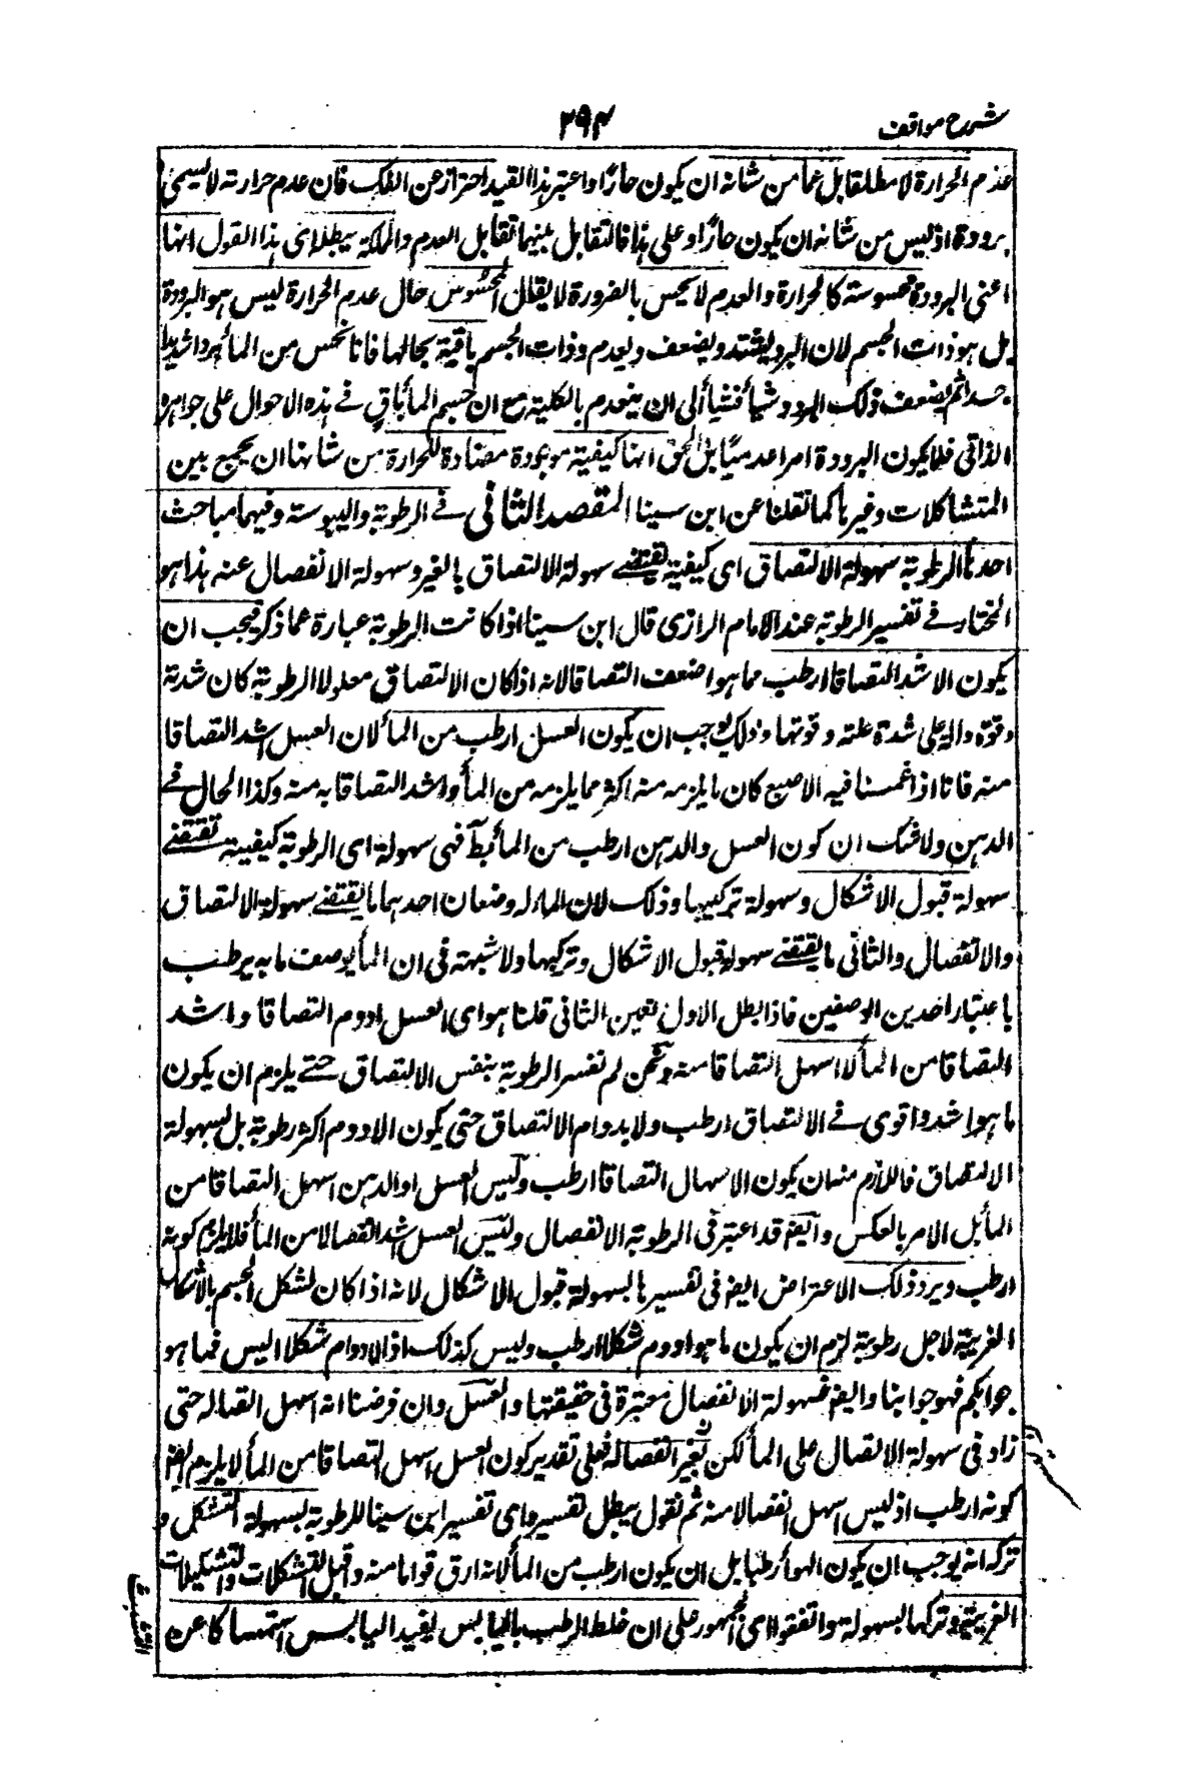 شرح مواقف
٢٩٤
عدم الحرارة لا مطلقا بل عما من شانه ان يكون حارًا واعتبر هذا القيد احترازعن الفلك فان عدم حرارته لا يسمى
برودة اذ ليس من شانه ان يكون حارًا وعلى هذا فالتقابل بينهما تقابل العدم والملكة يبطله اى هذا القول انها
اعنى البرودة محسوسة كالحرارة والعدم لا يحس بالضرورة لا يقال المحسوس حال عدم الحرارة ليس هو البرودة
بل هو ذات الجسم لان البرد يشتد ويضعف ويعدم وذات الجسم باقية بحالها فانا نحس من الماء بردا شديدا
جدا ثم يضعف ذلك البرد شيأ فشيأ الى ان ينعدم بالكلية مع ان جسم الماء باق فى هذه الاحوال على جواهره
الذاتى فلا يكون البرودة امرا عدميًا بل الحق انها كيفية موجودة مضادة للحرارة من شانها ان يجمع بين
المتشاكلات وغيرها كما نقلنا عن ابن سينا المقصد الثانى فى الرطوبة واليبوسة وفيهما مباحث
احدها الرطوبة سهولة الالتصاق اى كيفية تقتضى سهولة الالتصاق بالغير وسهولة الانفصال عنه هذا هو
المختار فى تفسير الرطوبة عند الامام الرازى قال ابن سينا اذا كانت الرطوبة عبارة عما ذكر فيجب ان
يكون الاشد التصاقا ارطب مما هو اضعف التصاقا لانه اذا كان الالتصاق معلولا للرطوبة كان شدته
وقوته دالة على شدة علته وقوتها وذلك يوجب ان يكون العسل ارطب من الماء لان العسل اشد التصاقا
منه فانا اذا غمسنا فيه الاصبع كان ما يلزمه منه اكثر مما يلزمه من الماء واشد التصاقا به منه وكذا الحال فى
الدهن ولا شك ان كون العسل والدهن ارطب من الماء بط فهى سهولة اى الرطوبة كيفية تقتضى
سهولة قبول الاشكال وسهولة تركيبها وذلك لان الماء له وصفان احدهما ما يقتضى سهولة الالتصاق
والانفصال والثانى ما يقتضى سهولة قبول الاشكال وتركها ولا شبهة فى ان الماء يوصف ما به يرطب
باعتبار احدين الوصفين فاذا بطل الاول تعين الثانى قلنا هو اى العسل ادوم التصاقا واشد
التصاقا من الماء لا اسهل التصاقا منه ونحن لم نفسر الرطوبة بنفس الالتصاق حتى يلزم ان يكون
ما هو اشد واقوى فى الالتصاق ارطب ولا بدوام الالتصاق حتى يكون الادوم اكثر رطوبة بل بسهولة
الالتصاق فاللازم منه ان يكون الاسهل التصاقا ارطب وليس العسل او الدهن اسهل التصاقا من
الماء بل الامر بالعكس وايضا قد اعتبر فى الرطوبة الانفصال وليس العسل اشد انفصالا من الماء فلا يلزم كونه
ارطب ويرد ذلك الاعتراض ايضا فى تفسيرها بسهولة قبول الاشكال لانه اذا كان لتشكل الجسم بالاشكال
الغريبة لاجل رطوبة لزم ان يكون ما هو ادوم شكلا ارطب وليس كذلك اذ الادوام شكلا اليس فما هو
جوابكم فهو جوابنا وايضا فسهولة الانفصال معتبرة فى حقيقتها والعسل وان فرضنا انه اسهل اتصاله حتى
زاد فى سهولة الاتصال على الماء لكن بغير انفصاله فعلى تقدير كون العسل اسهل التصاقا من الماء لا يلزم ايضا
كونه ارطب اذ ليس اسهل انفصالا منه ثم نقول يبطل تفسيره اى تفسير ابن سينا للرطوبة بسهولة التشكل و
تركه انه يوجب ان يكون الهواء رطبا بل ان يكون ارطب من الماء لانه ارق قواما منه واقبل للتشكلات والتشكيلات
الغريبة وتركها بسهولة واتفقوا اى الجمهور على ان خلط الرطب باليابس يفيد اليابس استمساكا عن